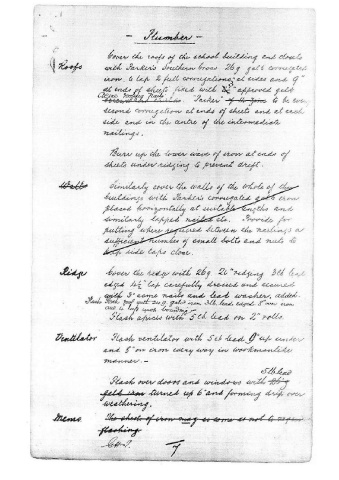 - Plumber -
Roofs Cover the roofs of the school building and closets
with Parker's Southern Cross 26g galv corrugated
iron to lap 2 full corrugations at sides and 9"
at ends of sheets fixed with approved galv
to be every
second corrugation at ends of sheets and at each
side and in the centre of the intermediate
nailings.
Burr up the lower wave of iron at ends of
sheets under ridging to prevent drift.
Walls Similarly cover the walls of the whole of the
buildings with Parker's corrugated galv iron
placed horizontally at suitable lengths and
similarly lapped nailed etc. Provide for
putting where required between the nailings a
sufficient number of small bolts and nuts to
keep side laps close.
Ridge Cover the ridge with 26g 21" ridging 3lb lead
edged 4½" lap carefully dressed and secured
with 3" same nails and lead washer, added.
Flash apices with 5lb lead on 2" rolls.
Ventilator Flash ventilator with 5lb lead 9" up under
and 8" on iron every way in workmanlike
manner. -
5lb lead
Flash over doors and windows with
turned up 6" and forming drip over
weathering.
Memo The sheets of iron may as same as not to
flashing
7